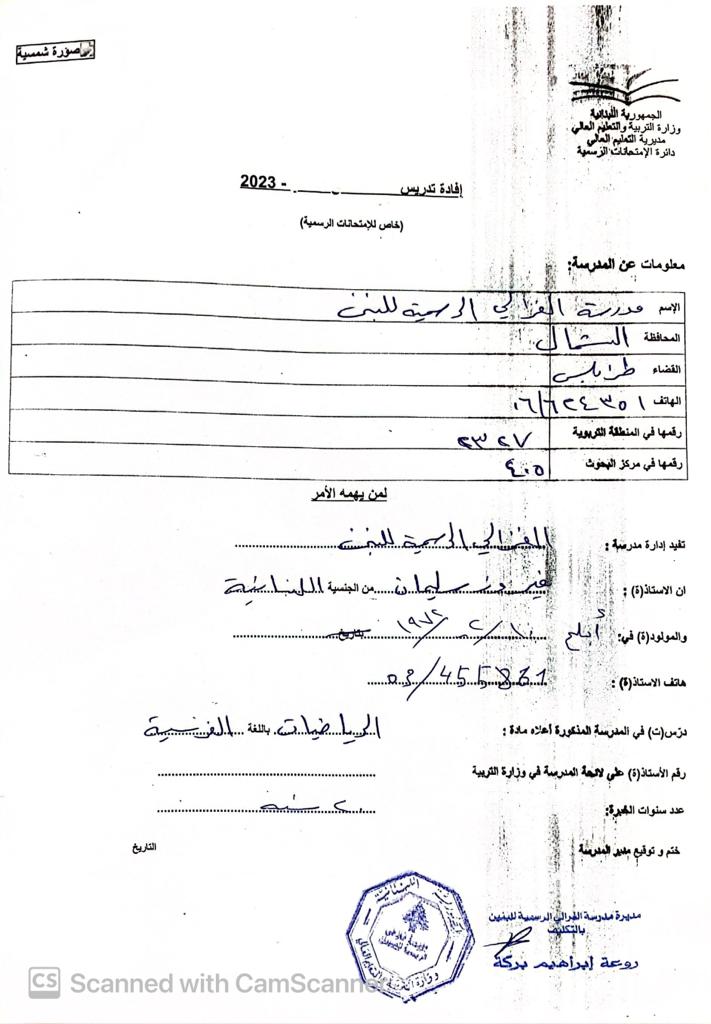 صورة شمسية
الجمهورية اللبنانية
وزارة التربية والتعليم العالي
مديرية التعليم العالي
دائرة الإمتحانات الرسمية
إفادة تدريس - 2023
(خاص للإمتحانات الرسمية)
معلومات عن المدرسة:
الإسم مدرسة الغزالي الرسمية للبنين
المحافظة الشمال
القضاء طرابلس
الهاتف ٠٦/٦٢٤٣٥١
رقمها في المنطقة التربوية ٢٣٢٧
رقمها في مركز البحوث ٤٠٥
لمن يهمه الأمر
تفيد إدارة مدرسة : الغزالي الرسمية للبنين
ان الاستاذ(ة) : فيروز سليمان من الجنسية اللبنانية
والمولود(ة) في: أبلح ١٠/٢/١٩٧٢ بتاريخ
هاتف الاستاذ(ة) : 03/455861
درّس(ت) في المدرسة المذكورة أعلاه مادة : الرياضيات باللغة الفرنسية
رقم الأستاذ(ة) على لائحة المدرسة في وزارة التربية
عدد سنوات الخبرة: ٢٠ سنة
ختم و توقيع مدير المدرسة
التاريخ
مديرة مدرسة الغزالي الرسمية للبنين
بالتكليف
روعة إبراهيم بركة
الجمهورية اللبنانية
وزارة التربية والتعليم العالي
CS Scanned with CamScanner